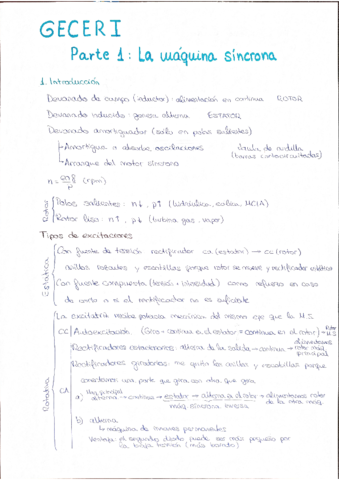 GECERI
Parte 1: La máquina síncrona
1. Introducción
Devanado de campo (inductor): alimentación en continua ROTOR
Devanado inducido: genera alterna ESTATOR
Devanado amortiguador (solo en polos salientes)
Amortigua o absorbe oscilaciones
Jaula de ardilla
Arranque del motor síncrono
(barras cortocircuitadas)
n = 60f/p (rpm)
Rotor
Polos salientes: n↓, p↑ (hidráulica, eólica, MCIA)
Rotor liso: n↑, p↓ (turbina gas, vapor)
Tipos de excitaciones
Estática
Con fuente de tensión rectificador ca (estator) → cc (rotor)
anillos rozantes y escobillas porque rotor se mueve y rectificador estático
Con fuente compuesta (tensión + intensidad) como refuerzo en caso
de cortocircuito si el rectificador no es suficiente
Rotativa
La excitatriz recibe potencia mecánica del mismo eje que la M.S.
CC
Autoexcitación (Gcc → continua en el estator → continua en el rotor)
Rectificadores estacionarios: alterna de la salida → continua → rotor máq. principal
Rectificadores giratorios: me quito los anillos y escobillas porque
CA
conectamos una parte que gira con otra que gira
a) alterna → continua → estator → alterna el rotor → alimentamos rotor
máq. síncrona inversa
de la otra máq.
b) alterna
máquina de imanes permanentes
Ventaja: el segundo diodo puede ser más pequeño por
la baja tensión (más barato)